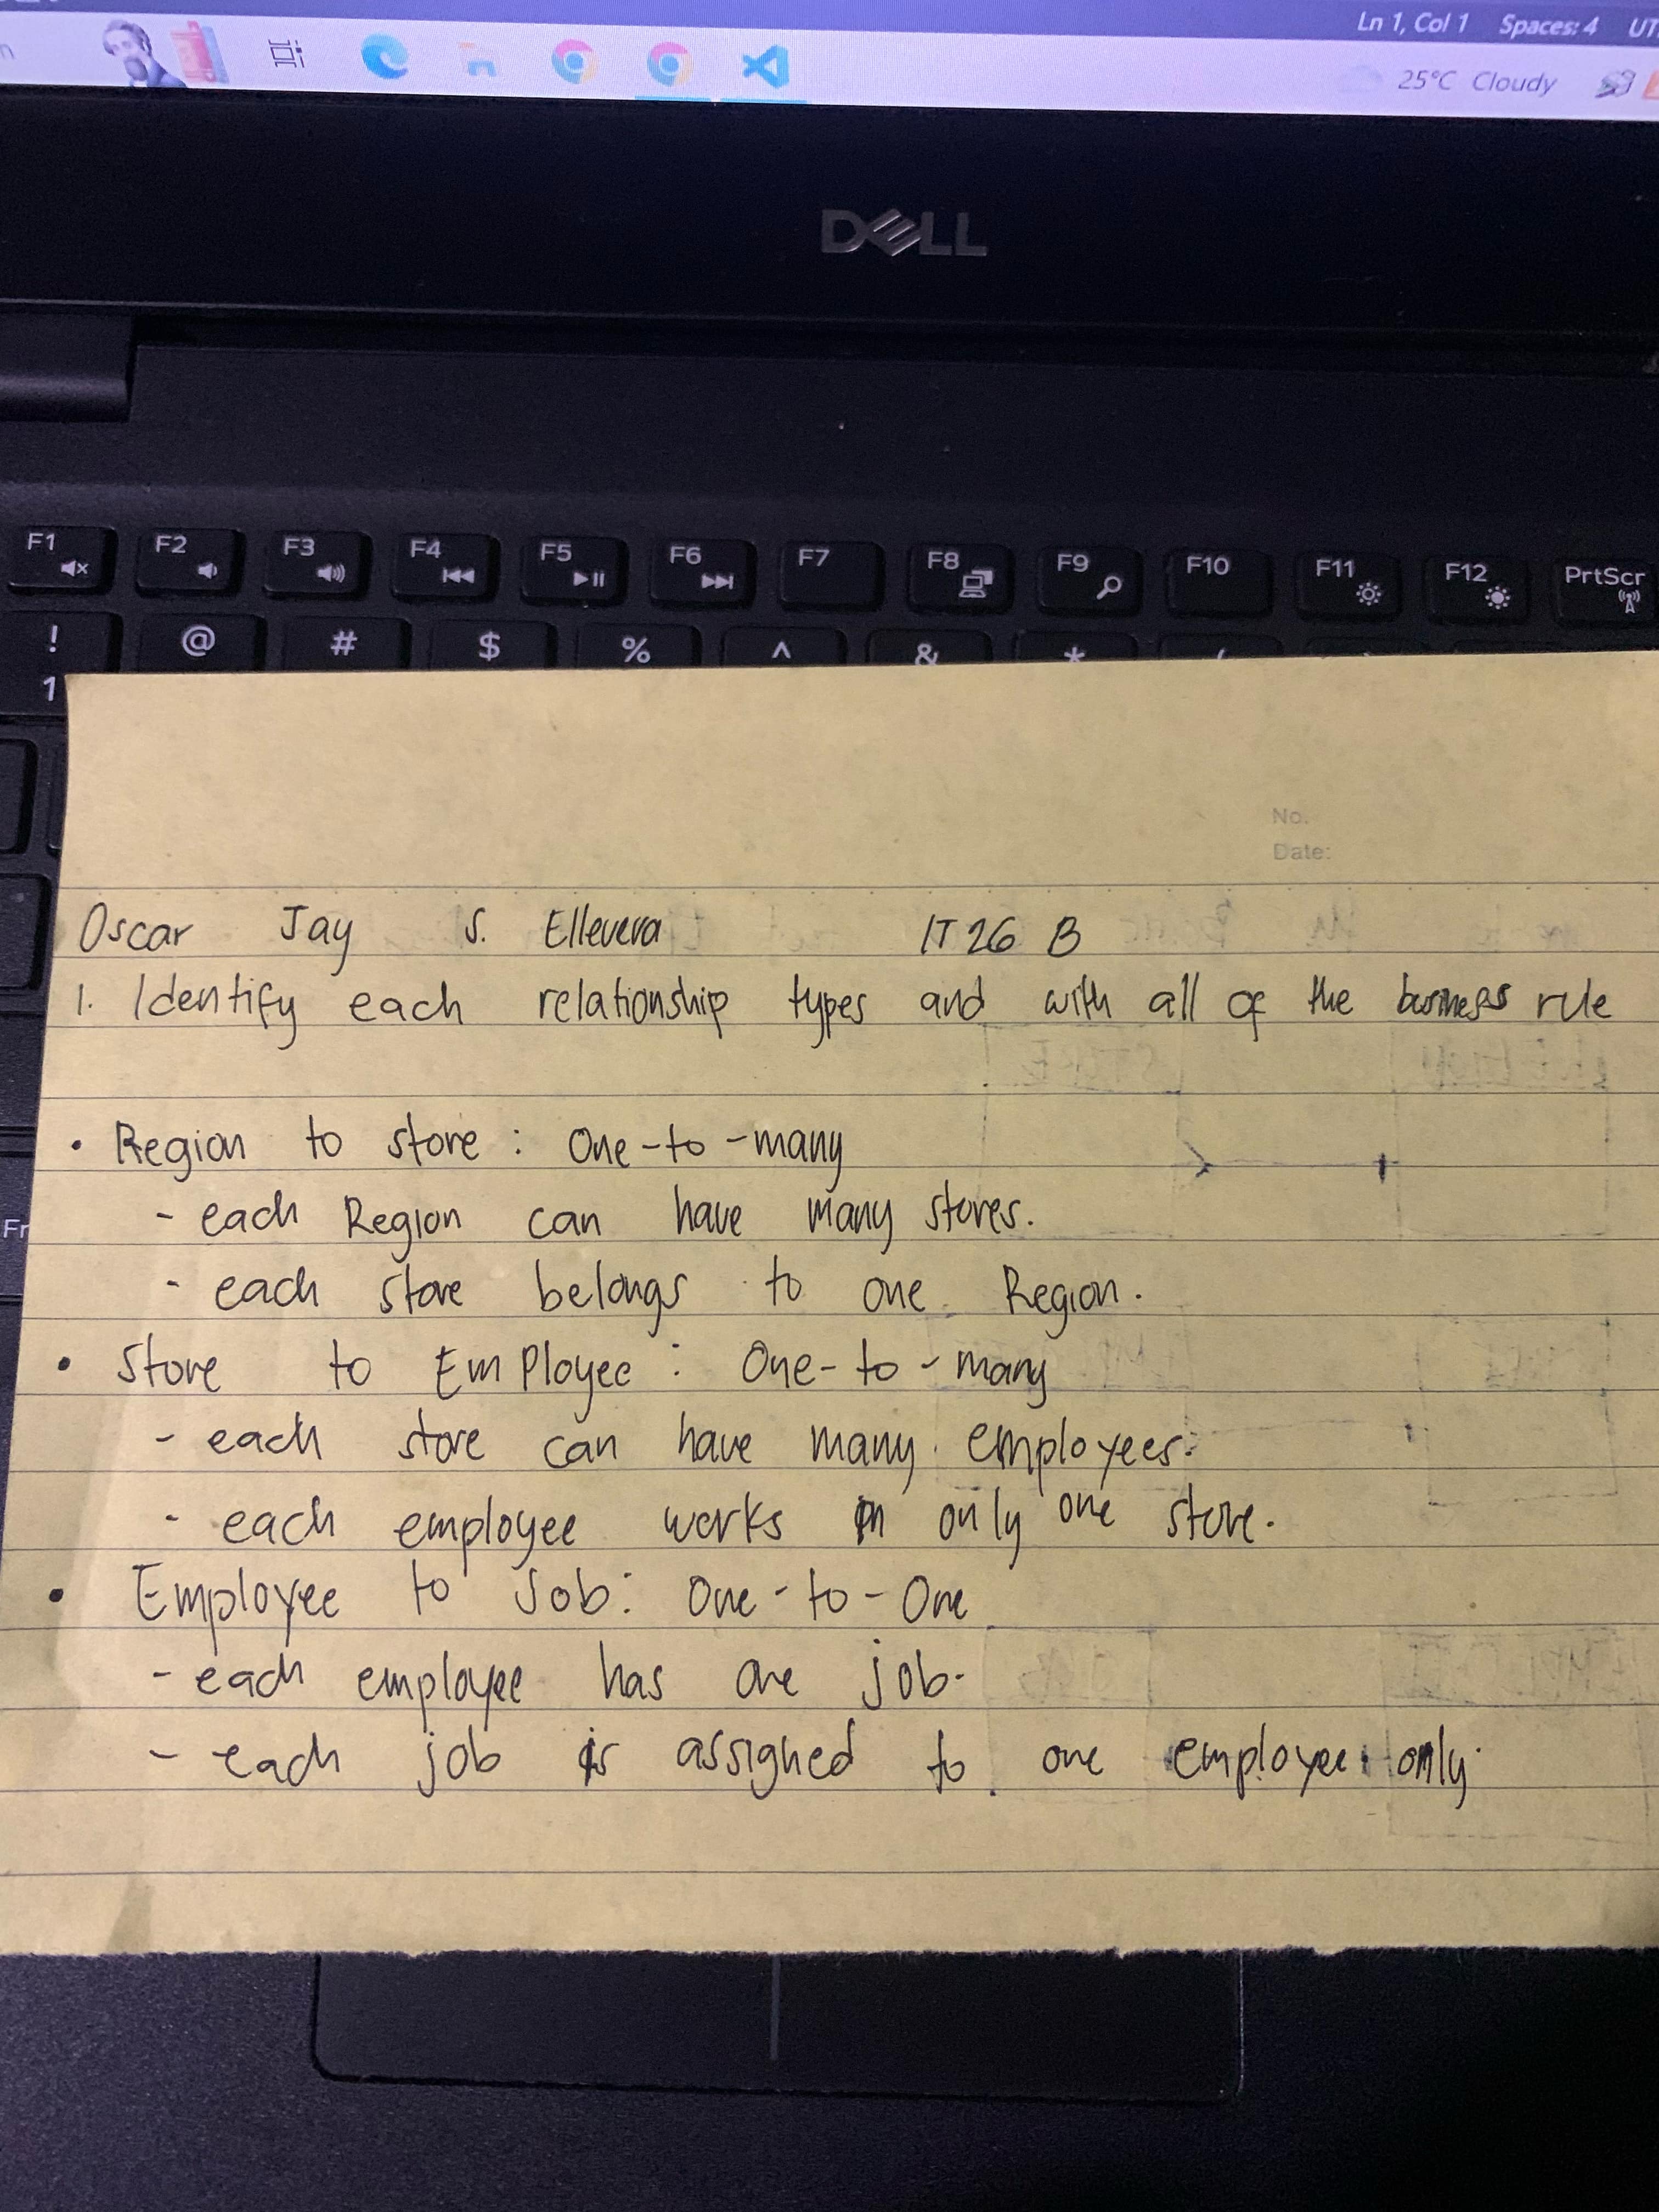 Ln 1, Col 1 Spaces: 4
25°C Cloudy
DELL
F1 F2 F3 F4 F5 F6 F7 F8 F9 F10 F11 F12 PrtScr
! @ # $ % ^ & *
1
No.
Date:
Oscar Jay S. Ellevera IT 26 B
1. Identify each relationship types and with all of the business rule
• Region to store : One-to-many
- each Region can have many stores.
- each store belongs to one Region.
• Store to EmPloyee : One-to-many
- each store can have many employees.
- each employee works in only one store.
• Employee to Job: One-to-One
- each employee has one job.
- each job is assigned to one employee only.